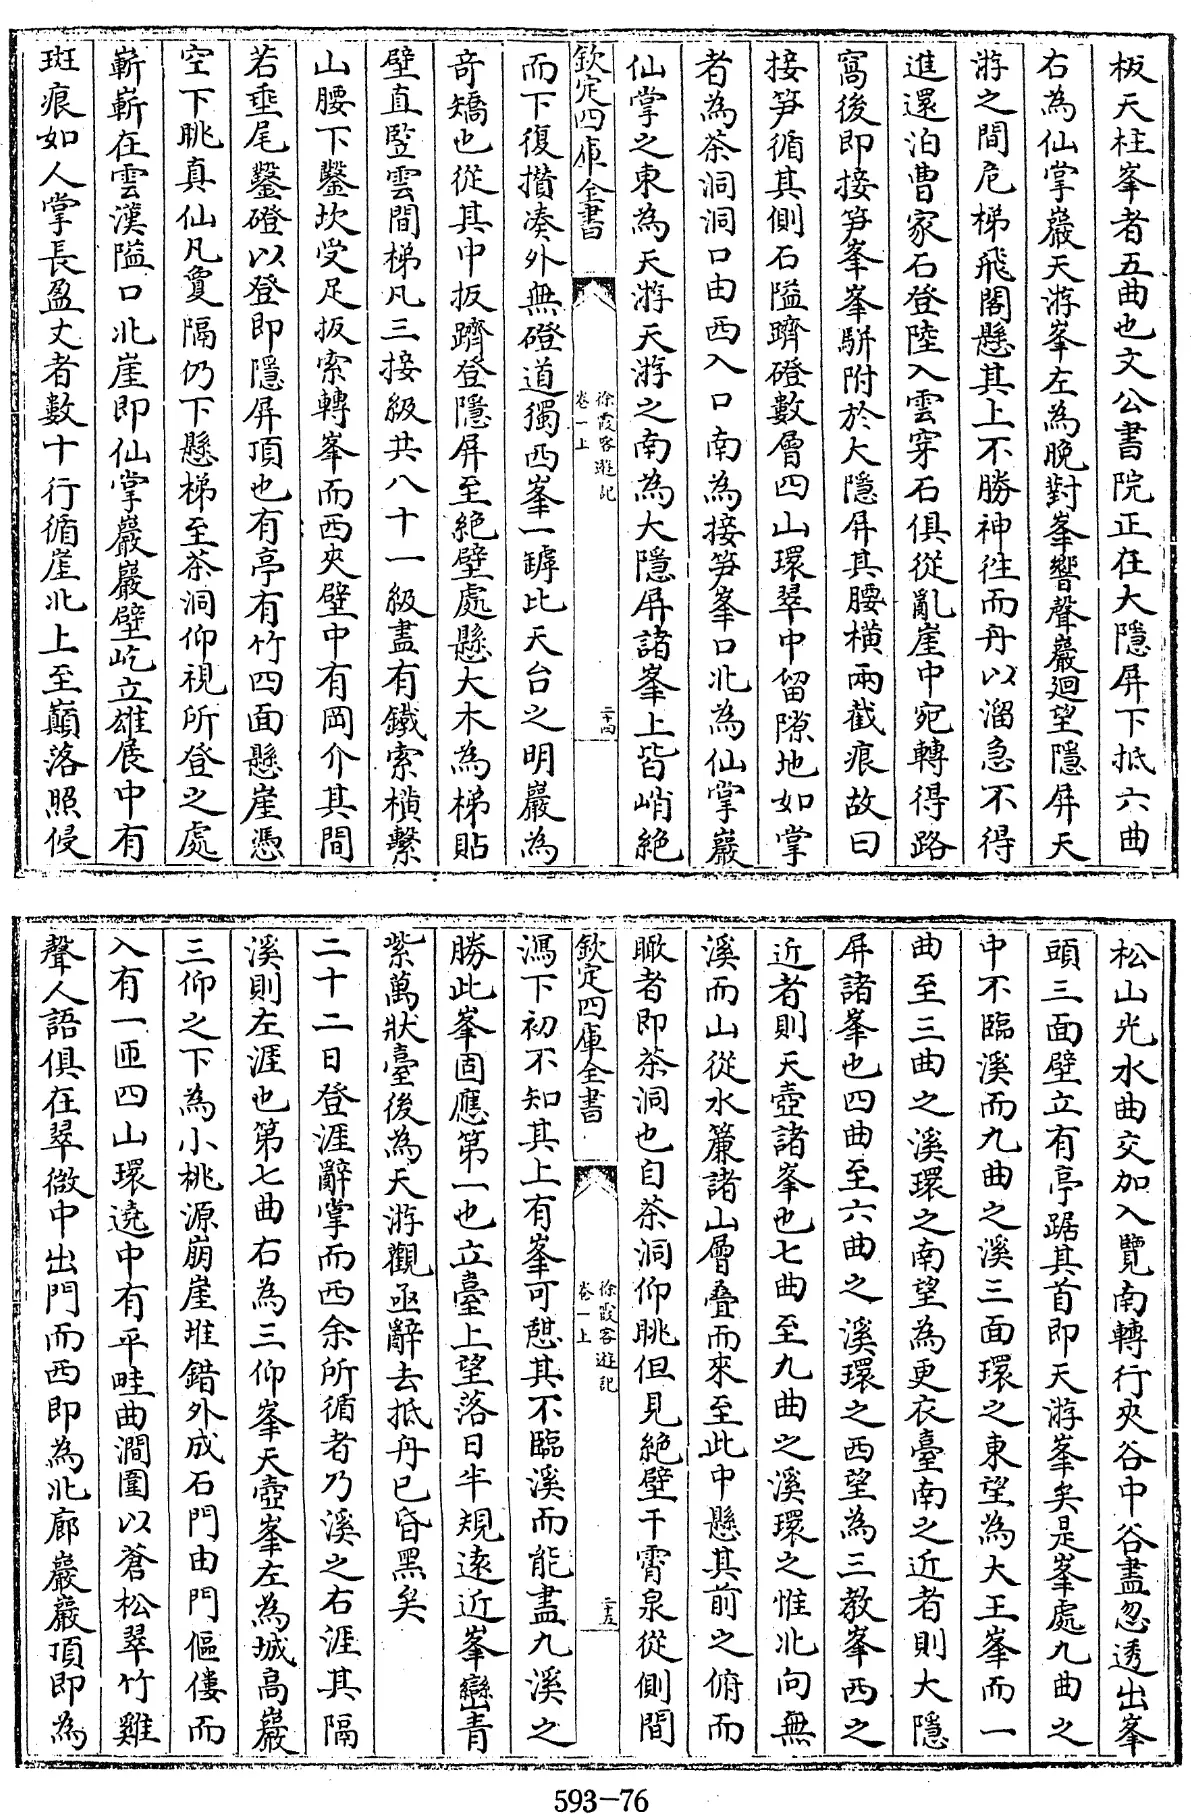 板天柱峯者五曲也文公書院正在大隱屏下抵六曲
右為仙掌巖天游峯左為晚對峯響聲巖迴望隱屏天
游之間危梯飛閣懸其上不勝神往而舟以溜急不得
進還泊曹家石登陸入雲穿石俱從亂崖中宛轉得路
窩後即接笋峯峯駢附於大隱屏其腰橫兩截痕故曰
接笋循其側石隘躋磴數層四山環翠中留隙地如掌
者為茶洞洞口由西入口南為接笋峯口北為仙掌巖
仙掌之東為天游天游之南為大隱屏諸峯上皆峭絶
欽定四庫全書
徐霞客遊記
卷一上
二十四
而下復攢凑外無磴道獨西峯一罅此天台之明巖為
奇矯也從其中扳躋登隱屏至絶壁處懸大木為梯貼
壁直竪雲間梯凡三接級共八十一級盡有鐵索橫繫
山腰下鑿坎受足扳索轉峯而西夾壁中有岡介其間
若垂尾鑿磴以登即隱屏頂也有亭有竹四面懸崖憑
空下眺真仙凡夐隔仍下懸梯至茶洞仰視所登之處
嶄嶄在雲漢隘口北崖即仙掌巖巖壁屹立雄展中有
斑痕如人掌長盈丈者數十行循崖北上至巔落照侵
松山光水曲交加入覽南轉行夾谷中谷盡忽透出峯
頭三面壁立有亭踞其首即天游峯矣是峯處九曲之
中不臨溪而九曲之溪三面環之東望為大王峯而一
曲至三曲之溪環之南望為更衣臺南之近者則大隱
屏諸峯也四曲至六曲之溪環之西望為三教峯西之
近者則天壺諸峯也七曲至九曲之溪環之惟北向無
溪而山從水簾諸山層疊而來至此中懸其前之俯而
瞰者即茶洞也自茶洞仰眺但見絶壁干霄泉從側間
欽定四庫全書
徐霞客遊記
卷一上
二十五
瀉下初不知其上有峯可憩其不臨溪而能盡九溪之
勝此峯固應第一也立臺上望落日半規遠近峯巒青
紫萬狀臺後為天游觀亟辭去抵舟已昏黑矣
二十二日登涯辭掌而西余所循者乃溪之右涯其隔
溪則左涯也第七曲右為三仰峯天壺峯左為城高巖
三仰之下為小桃源崩崖堆錯外成石門由門傴僂而
入有一匝四山環遶中有平畦曲澗圍以蒼松翠竹雞
聲人語俱在翠微中出門而西即為北廊巖巖頂即為
593-76